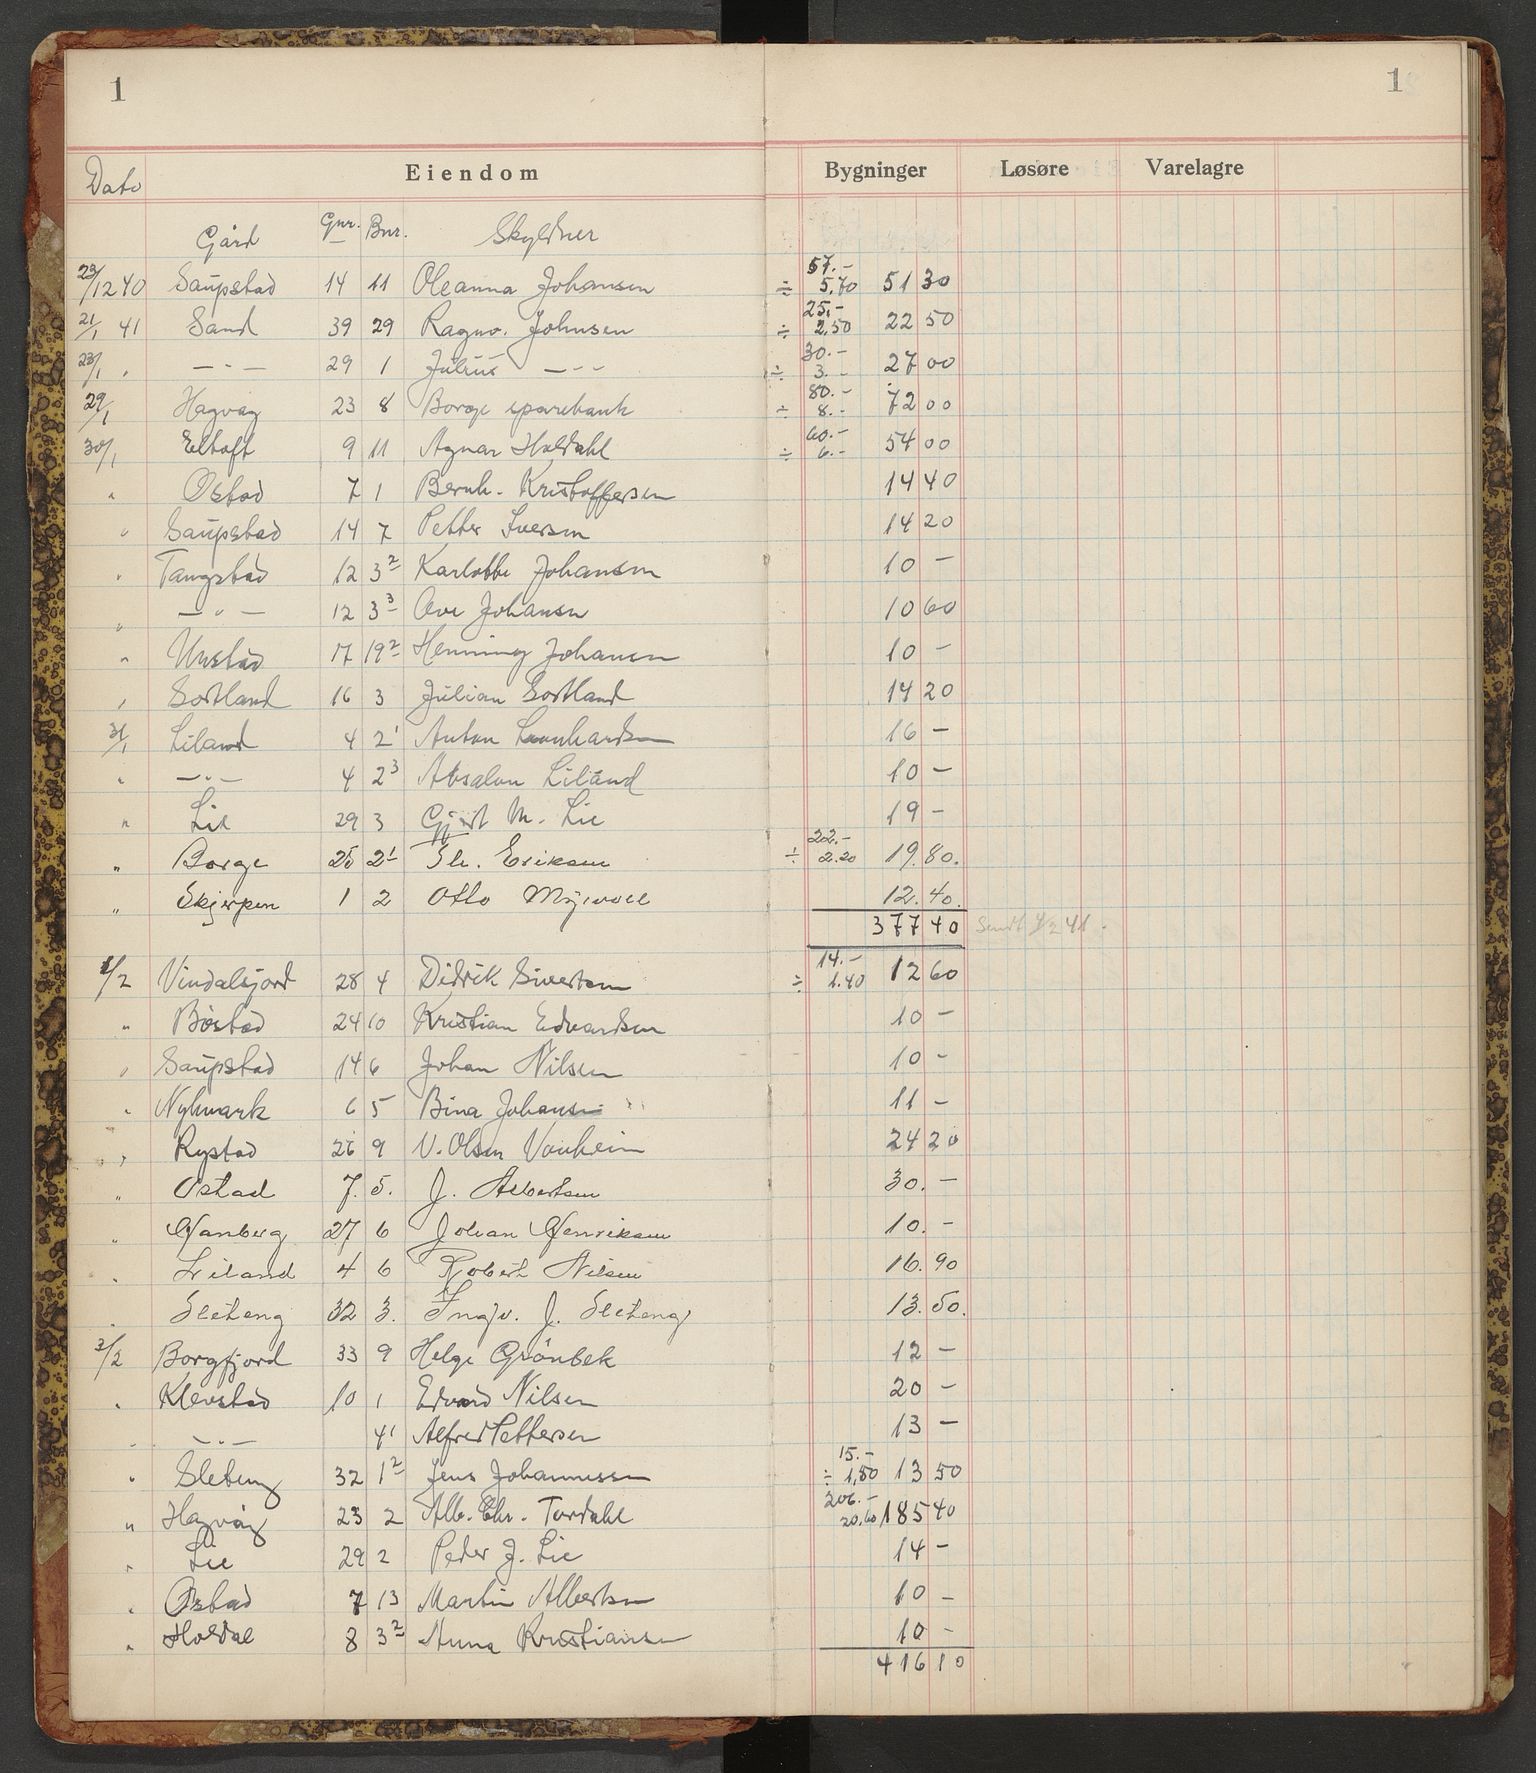 1 1
Dato Eiendom Bygninger Løsøre Varelagre
Gård Gnr. Bnr. Skyldner
23/12 40 Saupstad 14 11 Oleanna Johansen 57.- ÷ 5.70 51 30
21/1 41 Sand 39 29 Ragnv. Johnsen 25.- ÷ 2.50 22 50
23/1 " — " — 29 1 Julius — " — 30.- ÷ 3.- 27 00
29/1 Hagvåg 23 8 Borge sparebank 80.- ÷ 8.- 72 00
30/1 Eltoft 9 11 Agnar Holdahl 60.- ÷ 6.- 54 00
" Ostad 7 1 Bernh. Kristoffersen 14 40
" Saupstad 14 7 Petter Iversen 14 20
" Tangstad 12 3² Karlotte Johansen 10 -
" — " — 12 3³ Ove Johansen 10 60
" Unstad 17 19² Henning Johansen 10 -
" Sortland 16 3 Julian Sortland 14 20
31/1 Liland 4 2¹ Anton Leonhardsen 16 -
" — " — 4 2³ Absalon Liland 10 -
" Lie 29 3 Gjert M. Lie 19 -
" Borge 25 2¹ Eriksen 22.- ÷ 2.20 19.80.
" Skjerpen 1 2 Otto Myrvoll 12.40.
377 40 Sendt 1/2 41.
1/2 Vindalsjord 28 4 Didrik Sivertsen 14.- ÷ 1.40 12 60
" Bøstad 24 10 Kristian Edvardsen 10 -
" Saupstad 14 6 Johan Nilsen 10 -
" Nykmark 6 5 Bina Johansen 11 -
" Rystad 26 9 N. Olsen Vanheim 24 20
" Ostad 7. 5. J. Albertsen 30. -
" Hanberg 27 6 Johan Henriksen 10. -
" Liland 4 6 Robert Nilsen 16.90
" Sleteng 32 3. Ingv. J. Sleteng 13.50.
3/2 Borgfjord 33 9 Helge Grönbek 12 -
" Klevstad 10 1 Edvard Nilsen 20 -
" — " — 4¹ Alfred Pettersen 13 -
" Sleteng 32 1² Jens Johannessen 15.- ÷ 1,50 13 50
" Hagvåg 23 2 Alb. Chr. Tordahl 206.- 20.60 185 40
" Lie 29 2 Peder J. Lie 14 -
" Ostad 7 13 Martin Albertsen 10 -
" Holdal 8 3² Anna Kristiansen 10 -
416 10